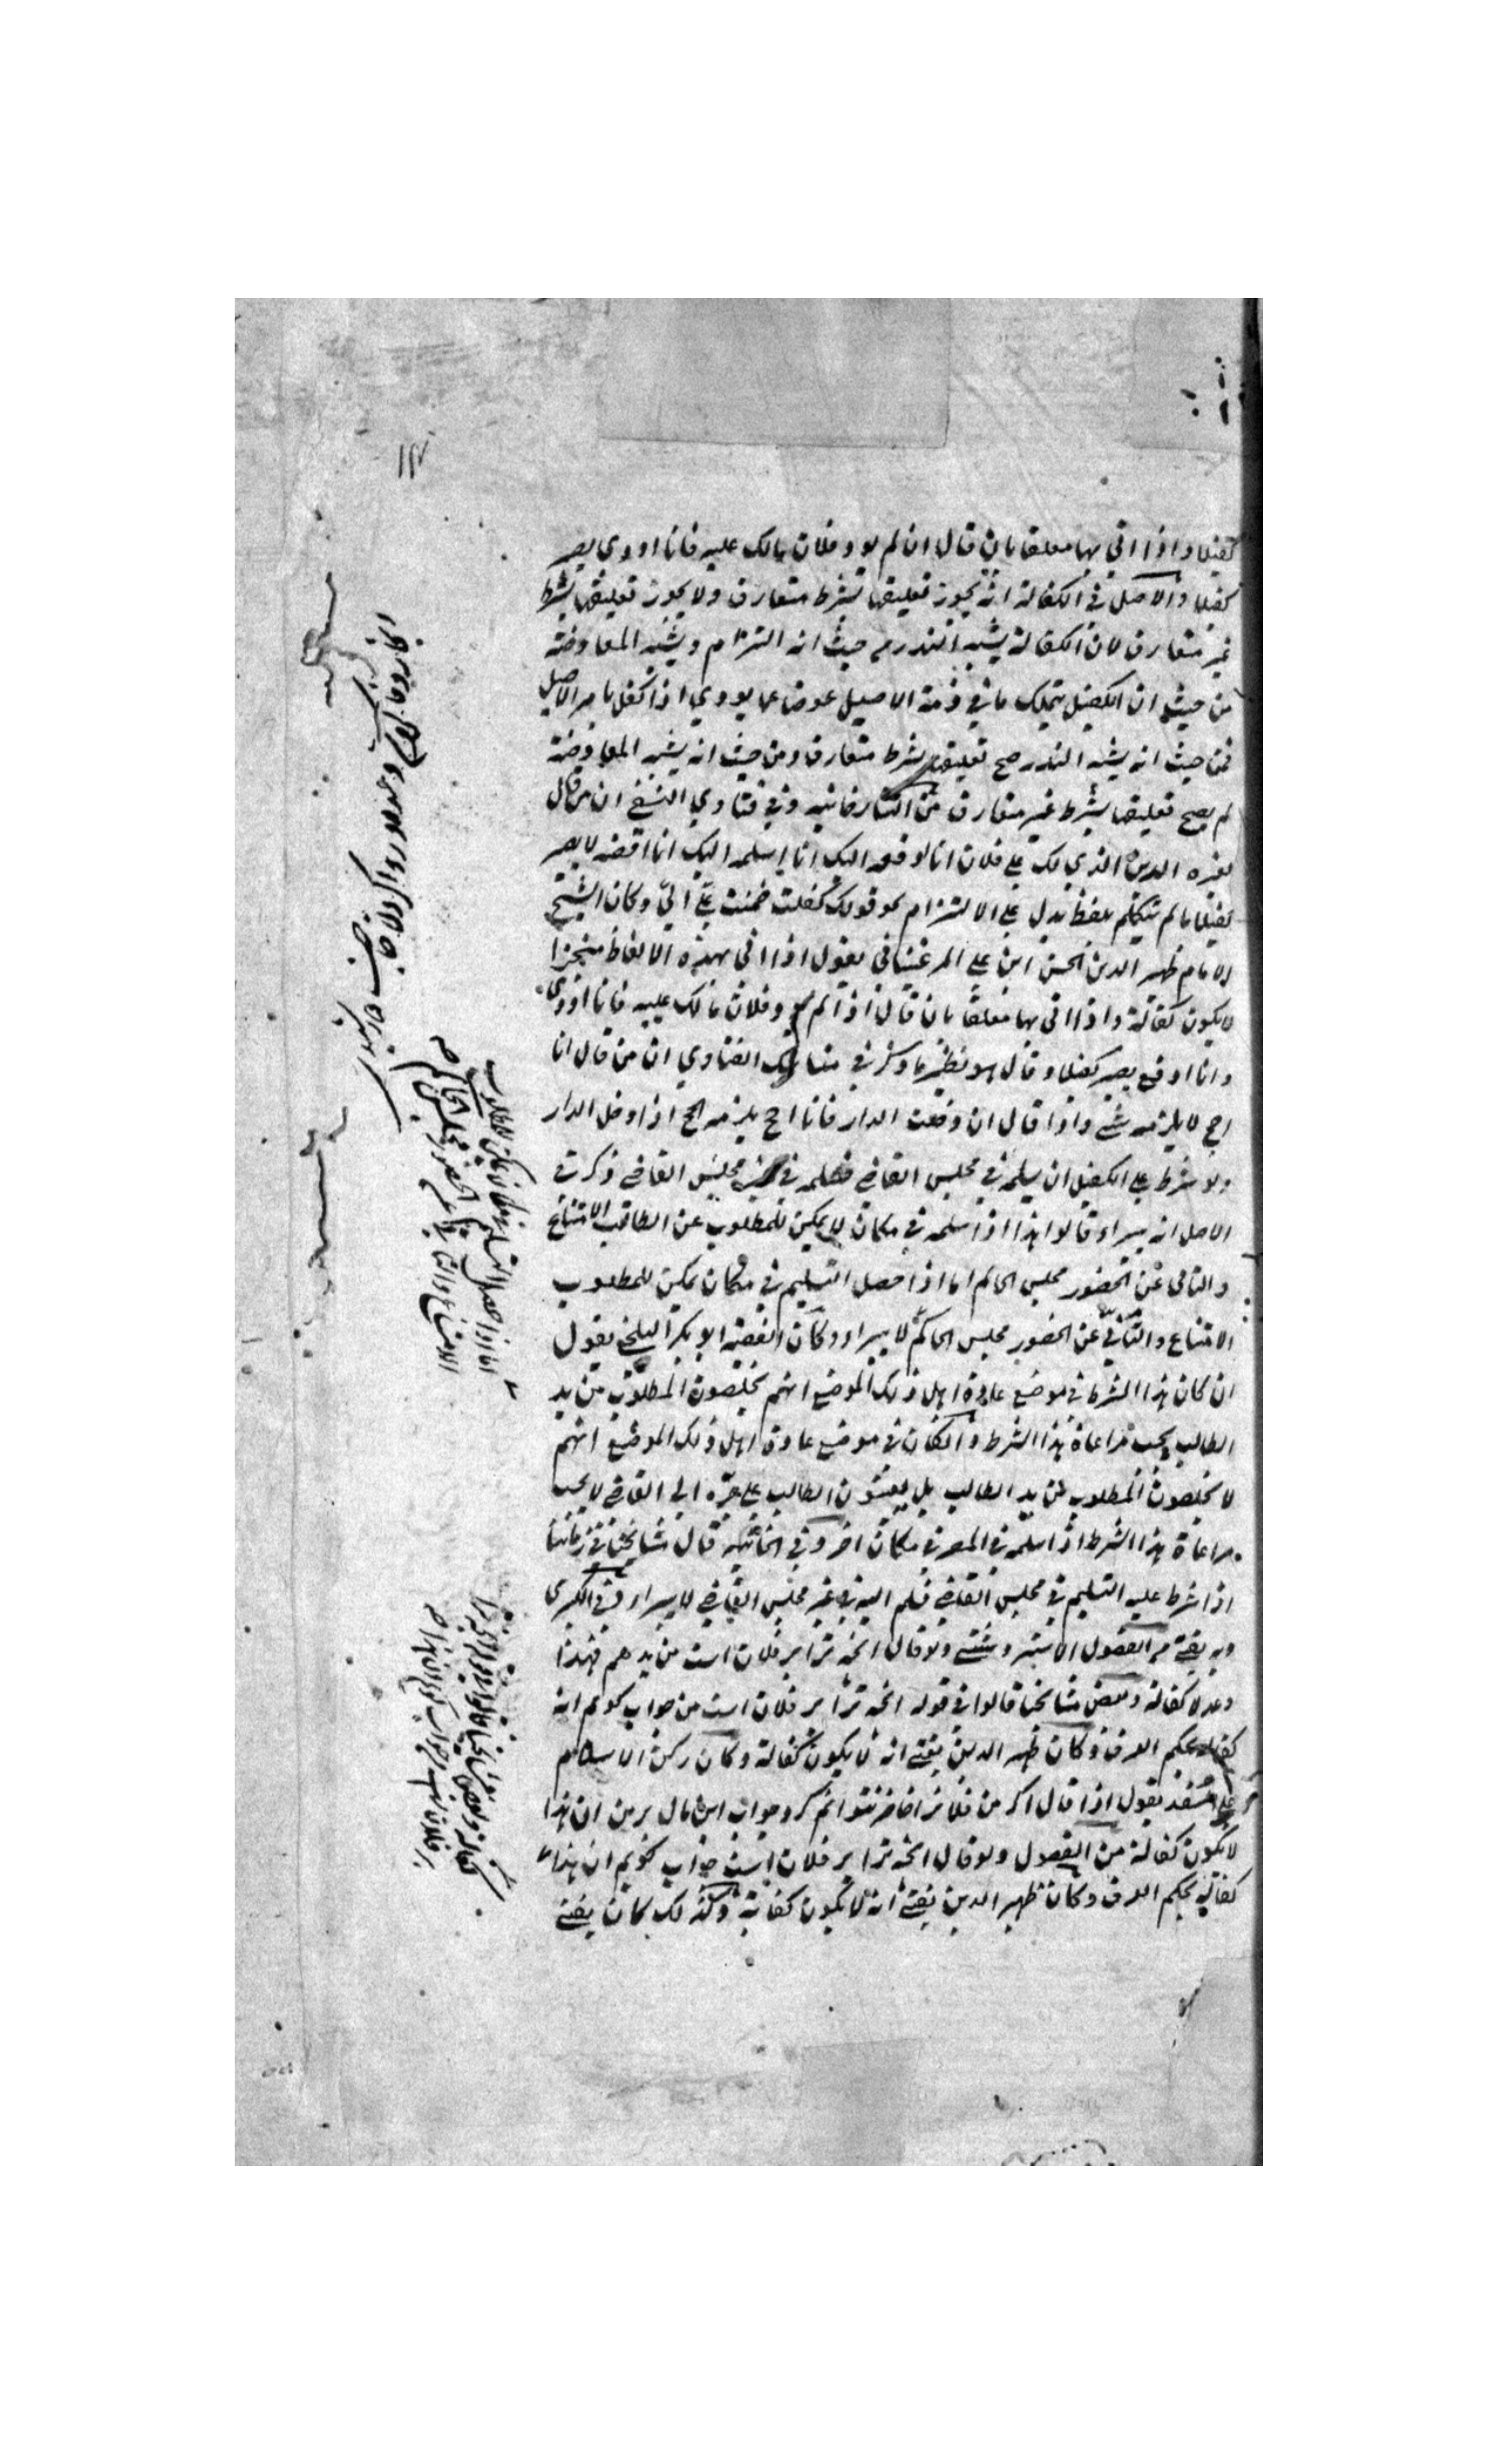 كفيلا واذا اتي بها معلقا بان قال ان لم يود فلان مالك عليه فانا اودي يصير
كفيلا والاصل في الكفالة انه يجوز تعليقها بشرط متعارف ولا يجوز تعليقها بشرط
غير متعارف لان الكفالة يشبه النذر من حيث انه التزام ويشبه المعاوضة
من حيث ان الكفيل يتملك ما في ذمة الاصيل عوضا عما يودي اذا كفل بامر الاصيل
فمن حيث انه يشبه النذر صح تعليقها بشرط متعارف ومن حيث انه يشبه المعاوضة
لم يصح تعليقها بشرط غير متعارف من التتارخانيه وفي فتاوي النسفي ان من قال
لغيره الدين الذي لك علي فلان انا ادفعه اليك انا اسلمه اليك انا اقضه لا يصير
كفيلا ما لم يتكلم بلفظ يدل علي الالتزام نحو قولك كفلت ضمنت علي الي وكان الشيخ
الامام ظهير الدين الحسن ابن علي المرغيناني يقول اذا اتي بهذه الالفاظ منجزا
لا يكون كفالة واذا اتي بها معلقا بان قال اذا لم يود فلان مالك عليه فانا اودي
وانا ادفع يصير كفيلا وقال هو نظير ما ذكر في مناسك الفتاوي ان من قال انا
احج لا يلزمه شي واذا قال ان دخلت الدار فانا احج يلزمه الحج اذا دخل الدار
ولو شرط علي الكفيل ان يسلمه في مجلس القاضي فسلمه في غير مجلس القاضي ذكر في
الاصل انه يبراء قالوا هذا اذا سلمه في مكان لا يمكن للمطلوب عن الطالب الامتناع
والتابي عن الحضور مجلس الحاكم اما اذا حصل التسليم في مكان يمكن للمطلوب
الامتناع والتابي عن الحضور مجلس الحاكم لا يبراء وكان الفقيه ابو بكر البلخي يقول
ان كان هذا الشرط في موضع عادة اهل ذلك الموضع انهم يخلصون المطلوب من يد
الطالب يجب مراعاة هذا الشرط وان كان في موضع عادة اهل ذلك الموضع انهم
لا يخلصون المطلوب من يد الطالب بل يعينون الطالب علي جره الي القاضي لا يجب
مراعاة هذا الشرط اذا سلمه في المصر في مكان اخر وفي الخانيه قال مشايخنا في زماننا
اذا شرط عليه التسليم في مجلس القاضي فسلم اليه في غير مجلس القاضي لا يبراء وفي الكبرى
وبه يفتي من الفصول الاستروشني ولو قال انچه ترا بر فلان است من بدهم فهذا
وعد لا كفالة وبعض مشايخنا قالوا في قوله انچه ترا بر فلان است من جواب كويم انه
كفالة بحكم العرف وكان ظهير الدين يفتي انه لا يكون كفالة وكان ركن الاسلام
علي السغدي يقول اذا قال اكر من فلانرا حاضر نتوانم كرد جواب اين مال بر من ان هذا
لا يكون كفالة من الفصول ولو قال انچه ترا بر فلان است جواب كويم ان هذا
كفالة بحكم العرف وكان ظهير الدين يفتي انه لا يكون كفالة وكذلك كان يفتي
اما اذا حصل التسليم في مكان يمكن للمطلوب
الامتناع والتابي عن الحضور مجلس الحاكم صح